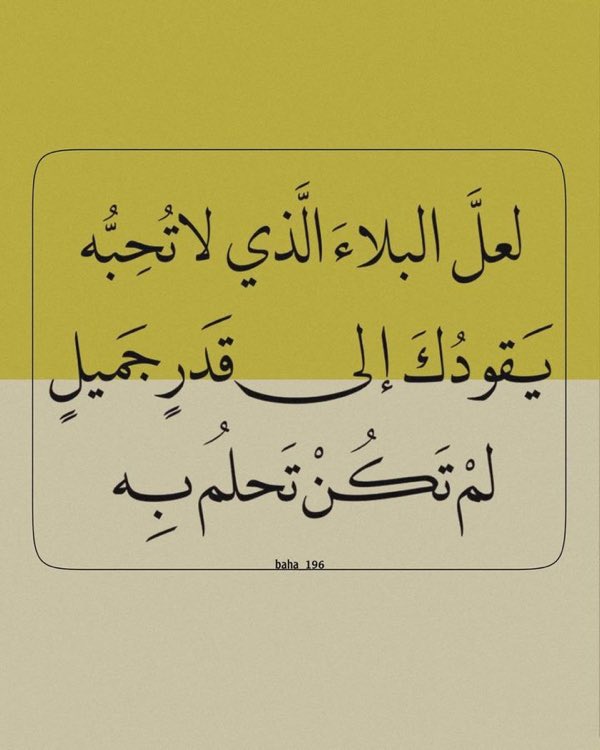 لعلَّ البلاءَ الَّذي لا تُحِبُّه
يَقودُكَ إلى قَدَرٍ جَميلٍ
لمْ تَكُنْ تَحلُم بِه
baha 196